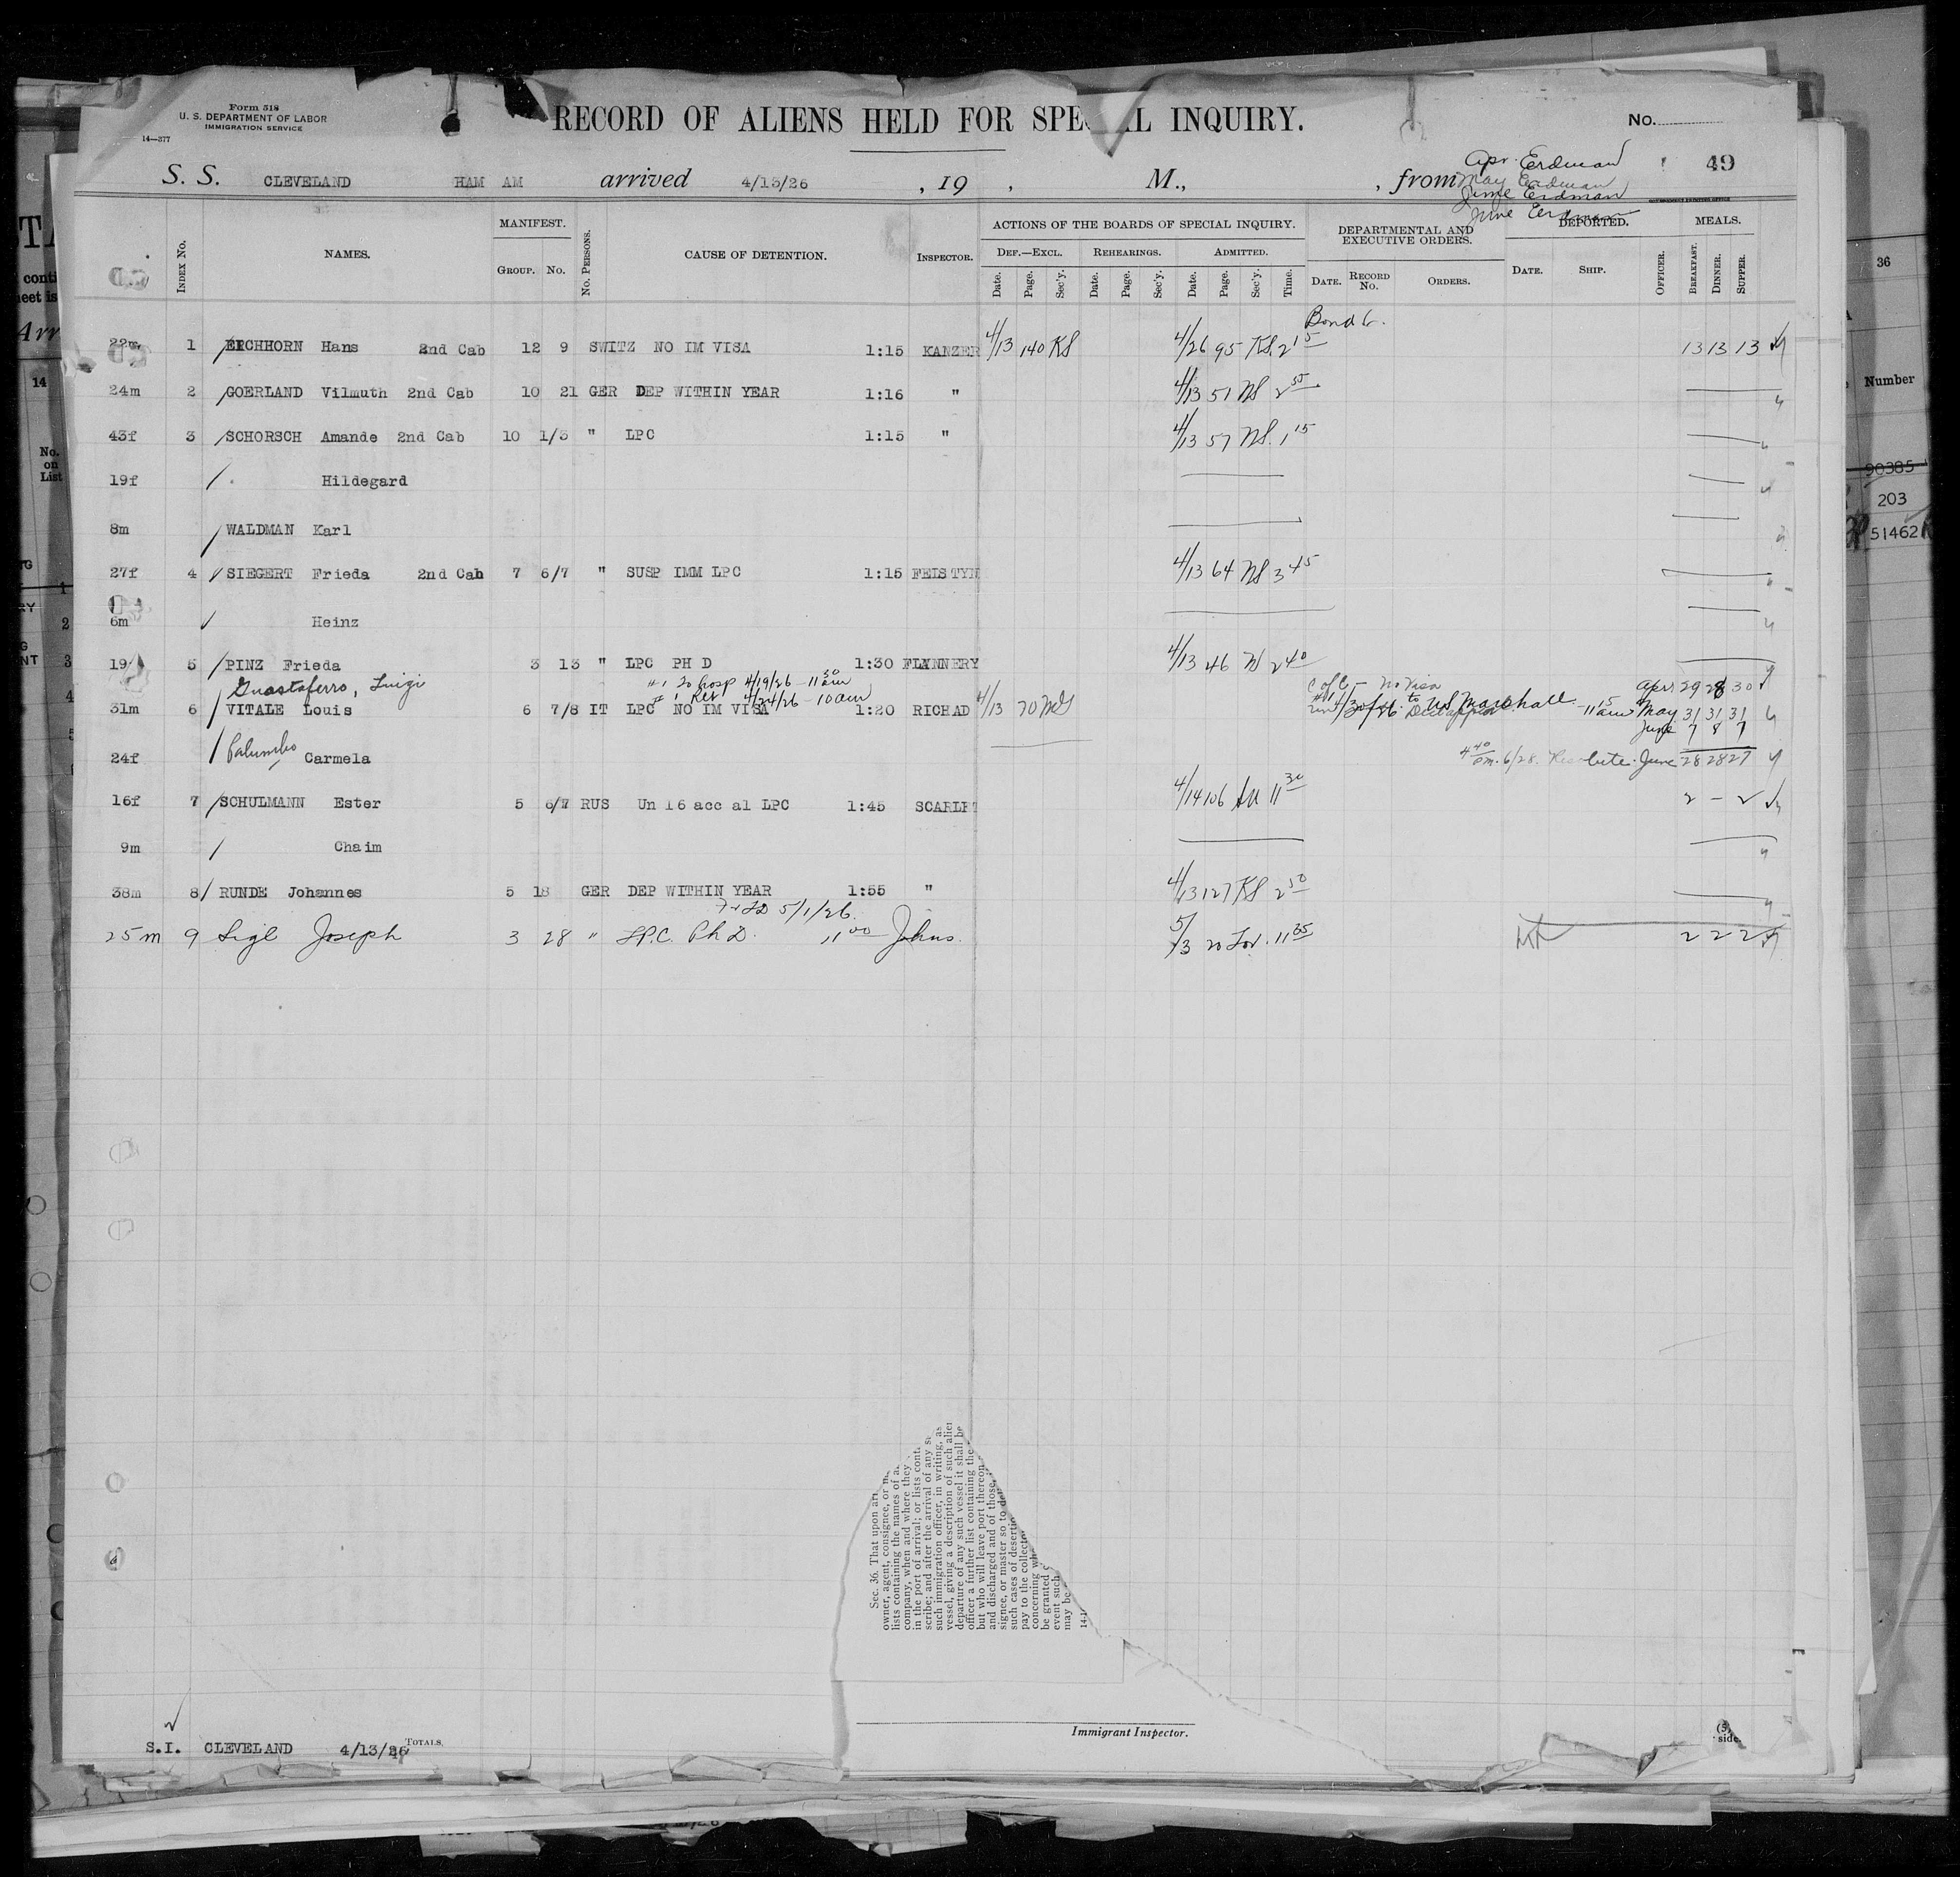 Form 518
U. S. DEPARTMENT OF LABOR
IMMIGRATION SERVICE
14—377
RECORD OF ALIENS HELD FOR SPECIAL INQUIRY.
No.
49
S. S. CLEVELAND HAM AM arrived 4/13/26 , 19 , M., , from
Apr. Erdman
May Erdman
June Erdman
June Erdman
INDEX No. NAMES. MANIFEST. GROUP. No. No. PERSONS. CAUSE OF DETENTION. INSPECTOR.
ACTIONS OF THE BOARDS OF SPECIAL INQUIRY.
DEF.—EXCL. REHEARINGS. ADMITTED.
Date. Page. Sec'y. Date. Page. Sec'y. Date. Page. Sec'y. Time.
DEPARTMENTAL AND EXECUTIVE ORDERS.
DATE. RECORD No. ORDERS.
DEPORTED.
DATE. SHIP. OFFICER.
MEALS.
BREAKFAST. DINNER. SUPPER.
Bond
22m 1 EICHHORN Hans 2nd Cab 12 9 SWITZ NO IM VISA 1:15 KANZER 4/13 140 KS 4/26 95 KS 2 15 13 13 13
24m 2 GOERLAND Vilmuth 2nd Cab 10 21 GER DEP WITHIN YEAR 1:16 " 4/13 51 NS 2 55
43f 3 SCHORSCH Amande 2nd Cab 10 1/3 " LPC 1:15 " 4/13 57 NS. 1 15
19f Hildegard
8m WALDMAN Karl
27f 4 SIEGERT Frieda 2nd Cab 7 6/7 " SUSP IMM LPC 1:15 FEISTYN 4/13 64 NS 3 45
6m Heinz
19 5 PINZ Frieda 3 13 " LPC PH D 1:30 FLANNERY 4/13 46 N 2 40
Guastaferro, Luigi #1 To hosp 4/19/26 - 11 30 am
# 1 Ret 4/24/26 - 10 am
31m 6 VITALE Louis 6 7/8 IT LPC NO IM VISA 1:20 RICHAD 4/13 70 MS
No Visa
to US Marshall 11 15 am
Apr 29 28 30
May 31 31 31
June 7 8 7
24f Palumbo Carmela 4 40 pm. 6/28. Resolute. June 28 28 27
16f 7 SCHULMANN Ester 5 6/7 RUS Un 16 acc al LPC 1:45 SCARLET 4/14 106 11 30 2 - 2
9m Chaim
38m 8 RUNDE Johannes 5 18 GER DEP WITHIN YEAR 1:55 " 4/13 127 KS 2 50
5/1/26
25m 9 Sigl Joseph 3 28 " LP.C. Ph D. 11 00 Johns. 5/3 20 11 35 2 2 2
Sec. 36. That upon
owner, agent, consignee, or
lists containing the names of
company, when and where they
in the port of arrival; or lists
scribe; and after the arrival of any
such immigration officer, in writing, as
vessel, giving a description of such alien
departure of any such vessel it shall be
officer a further list containing the
but who will leave port thereon
and discharged and of those
signee, or master so to
such cases of
pay to the
concerning
be granted
event such
may be
Immigrant Inspector.
S.I. CLEVELAND 4/13/26 TOTALS,
(5)
side.
TA
36
Arr
14
Number
No. on List
90385
203
51462
1
2
3
4